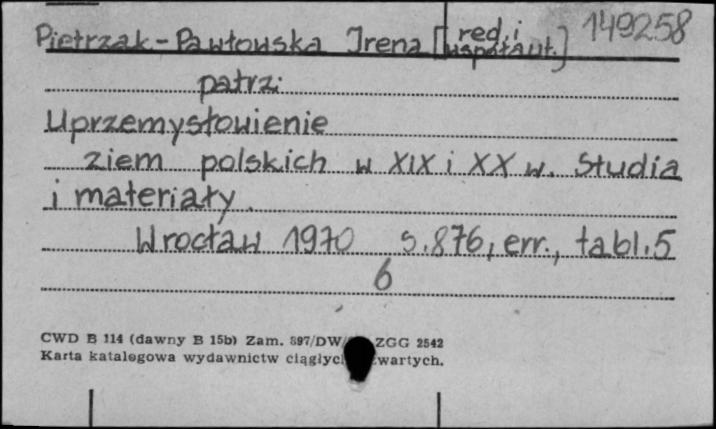 Pietrzak-Pawłowska Irena [red. i współaut.] 149258
patrz:
Uprzemysłowienie
ziem polskich w XIX i XX w. Studia
i materiały.
Wrocław 1970 s. 876, err., tabl. 5
6
CWD B 114 (dawny B 15b) Zam. 897/DW/ ZGG 2542
Karta katalogowa wydawnictw